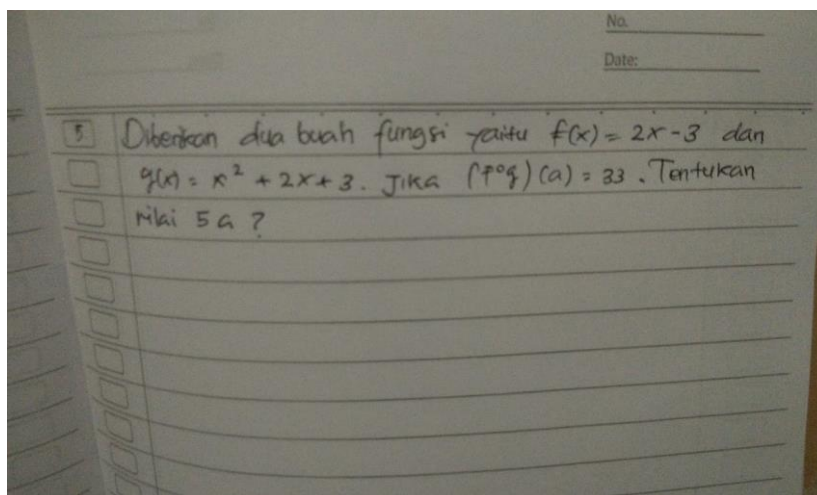 No.
Date:
5 Diberikan dua buah fungsi yaitu f(x) = 2x - 3 dan
g(x) = x² + 2x + 3. Jika (fog)(a) = 33. Tentukan
nilai 5a?